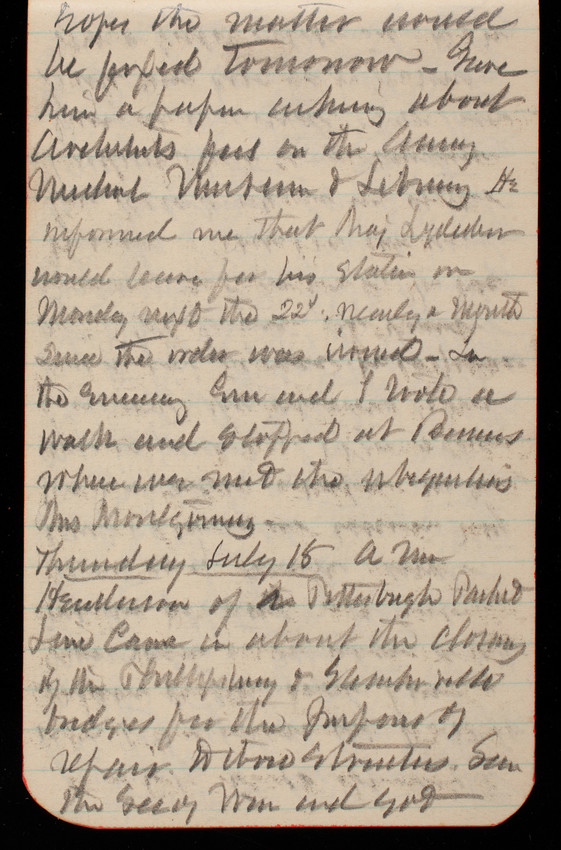 hopes the matter would
be fixed tomorrow - Gave
him a paper asking about
Architects fees on the Army
Medical Museum & Library He
informed me that Maj Lydecker
would leave for his station on
Monday next the 22d, nearly a Month
Since the order was issued - In
the Evening Em and I took a
walk and stopped at
where we met the ubiquitous
Mrs Montgomery -
Thursday July 18 A Mr
Henderson of the Pittsburgh Packet
Line Came in about the closing
of the Phillipsburg &
bridges for the purpose of
repair to those structures. Saw
the Secy War and got